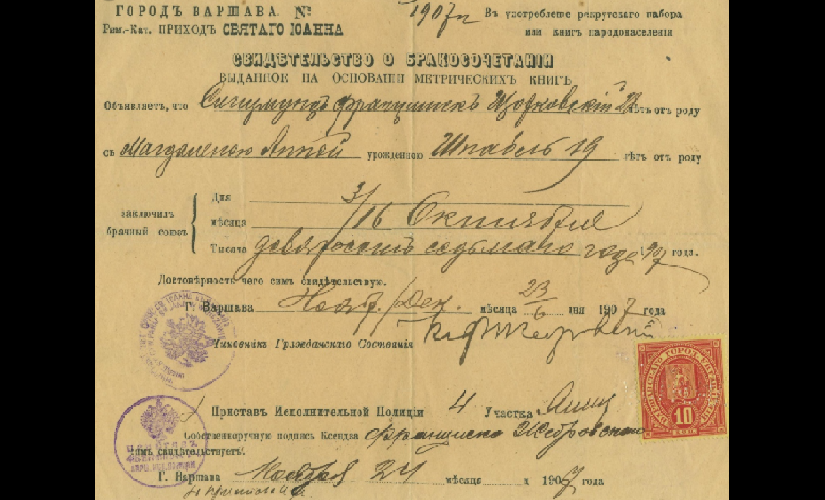 ГОРОДЪ ВАРШАВА. №
1907 г.
Въ употребленіе рекрутскаго набора
или книгъ народонаселенія
Рим.-Кат. ПРИХОДЪ СВЯТАГО ІОАННА
СВИДѢТЕЛЬСТВО О БРАКОСОЧЕТАНІИ
ВЫДАННОЕ НА ОСНОВАНІИ МЕТРИЧЕСКИХЪ КНИГЪ
Объявляетъ, что Сигизмундъ Францискъ лѣтъ отъ роду
съ Магдаленою Анной урожденною Шнабель 19 лѣтъ отъ роду
заключилъ
брачный союзъ
Дня 3/16
мѣсяца Октября
Тысяча девятьсотъ седьмаго года 1907 года.
Достовѣрность чего симъ свидѣтельствую.
Г. Варшава Нояб/Дек. мѣсяца 23/6 дня 1907 года
Чиновникъ Гражданскаго Состоянія
10
КОП.
Приставъ Исполнительной Полиціи 4 Участка
Собственноручную подпись Ксендза Франциска
симъ свидѣтельствуетъ
Г. Варшава Ноября 24 мѣсяца 1907 года